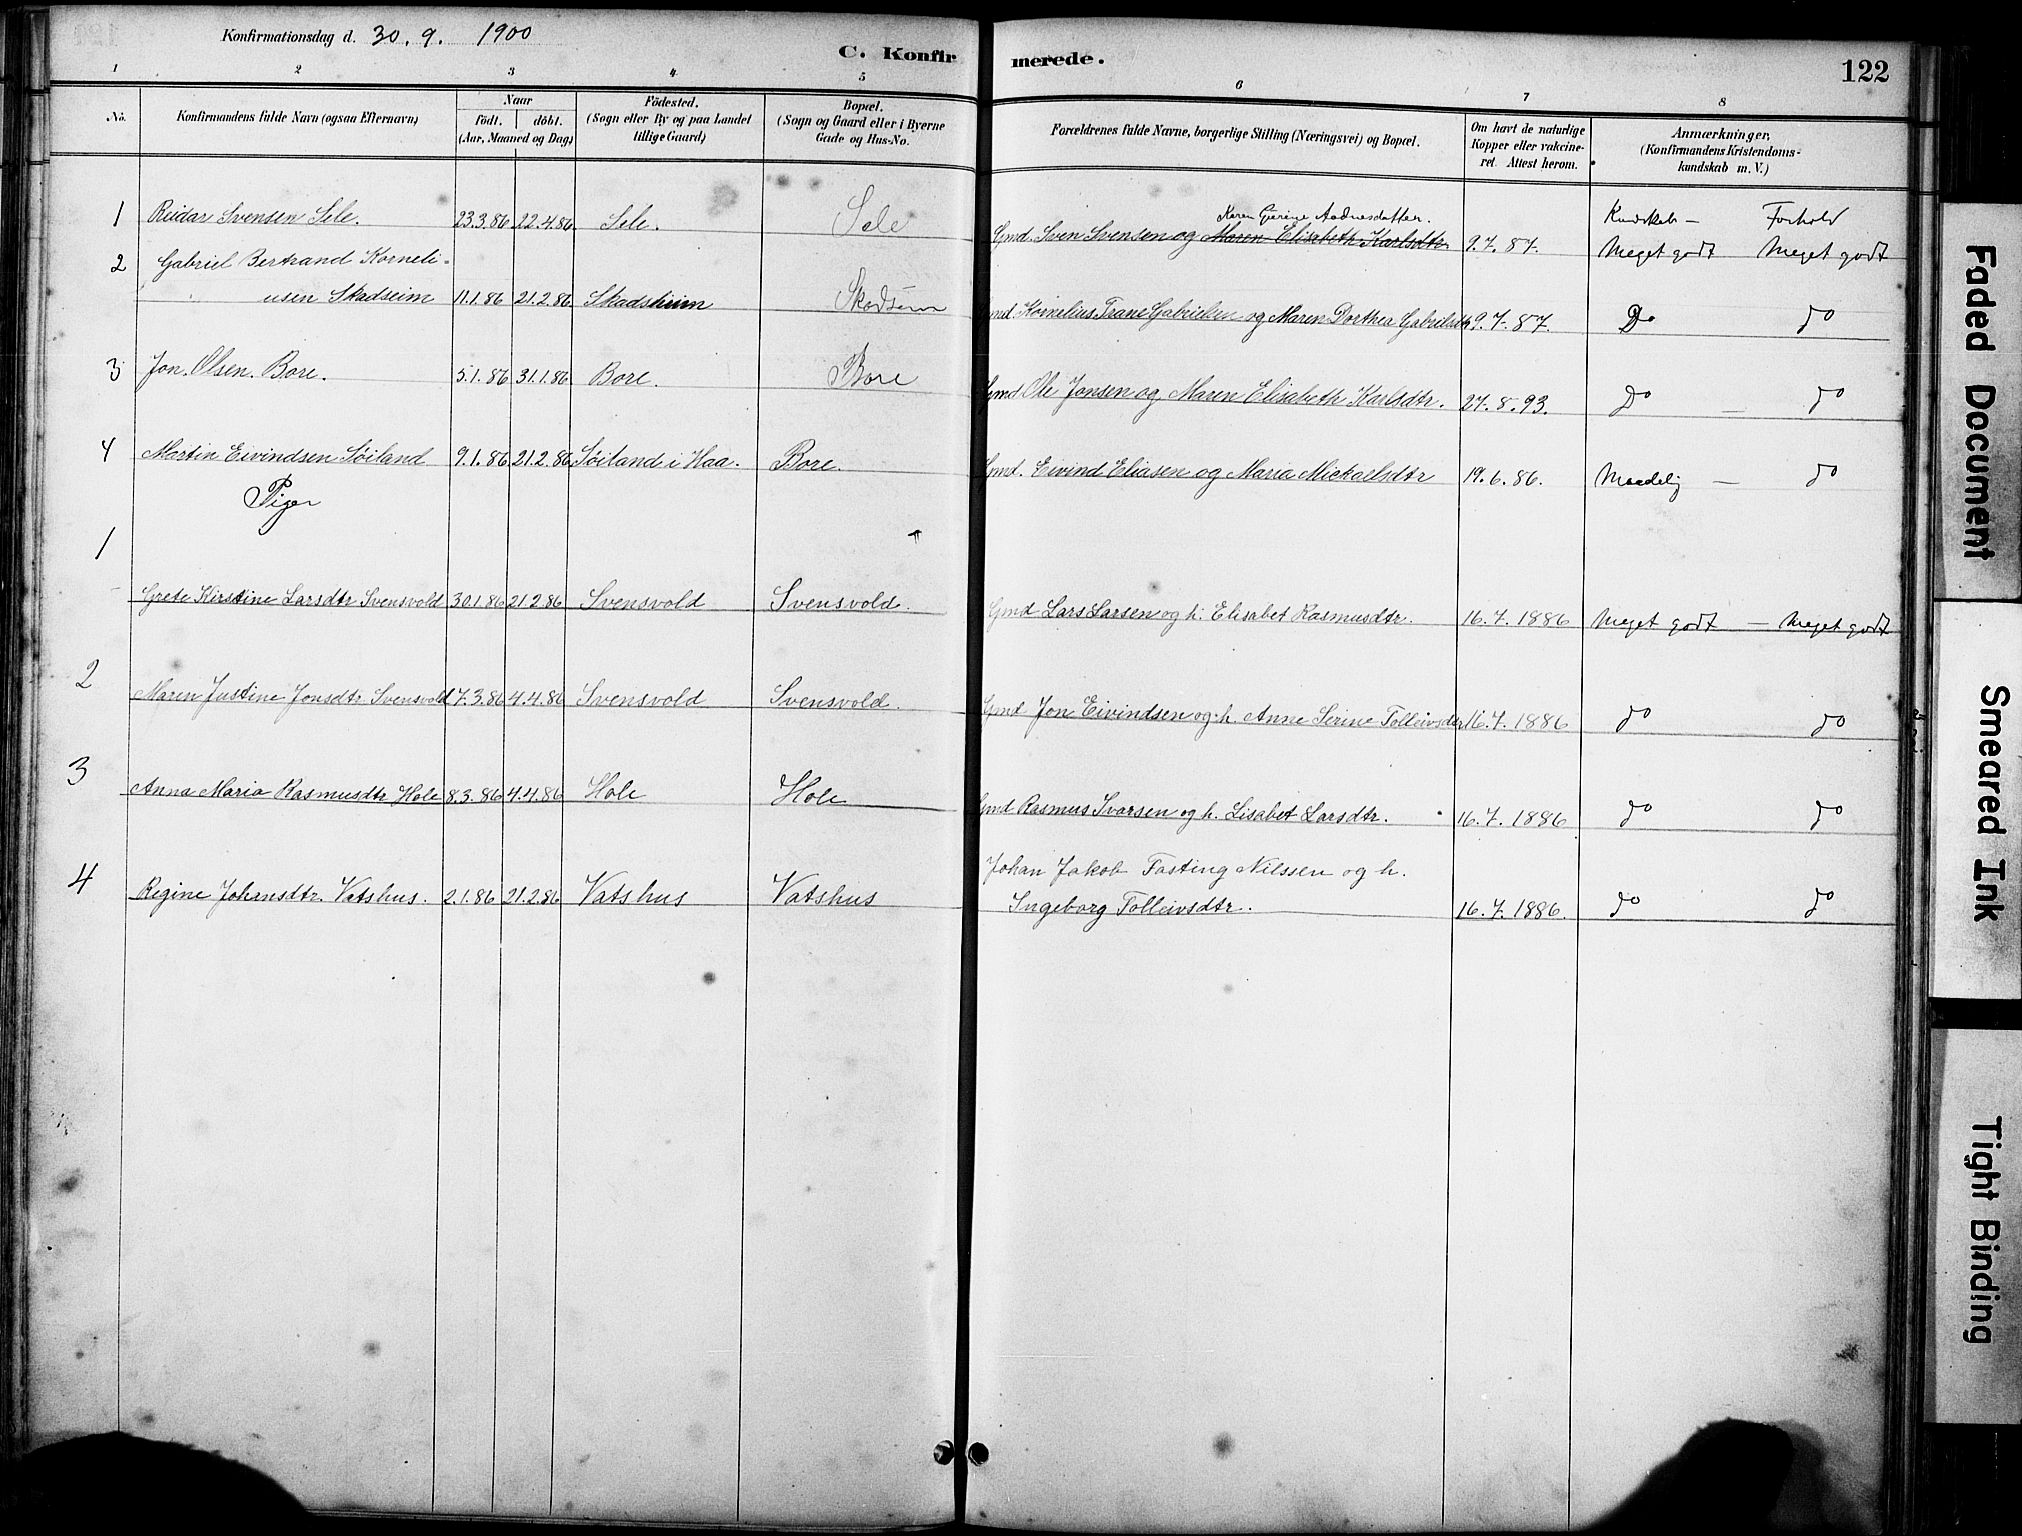 Konfirmationsdag d. 30. 9. 1900
C. Konfirmerede.
122
1 2 3 4 5 6 7 8
No. Konfirmandens fulde Navn (ogsaa Efternavn) Naar födt. döbt. (Aar, Maaned og Dag) Födested. (Sogn eller By og paa Landet tillige Gaard) Bopæl. (Sogn og Gaard eller i Byerne Gade og Hus-No. Forældrenes fulde Navne, borgerlige Stilling (Næringsvei) og Bopæl. Om havt de naturlige Kopper eller vakcineret. Attest herom. Anmærkninger, (Konfirmandens Kristendomskundskab m. V.)
Karen Gurine Aadnesdatter. Kundskab – Forhold
1 Reidar Svensen Sele. 23.3.86 22.4.86 Sele. Sele Gmd. Sven Svensen og Maren Elisabeth Karlsdtr. 9.7.87. Meget godt Meget godt
2 Gabriel Bertrand Korneli-
usen Skadseim 11.1.86 21.2.86 Skadsheim Skadsem Gmd. Kornelius Trane Gabrielsen og Maren Dorthea Gabrielsdtr 9.7.87. Do do
3 Jon Olsen Bore. 5.1.86 31.1.86 Bore. Bore Gmd. Ole Jonsen og Maren Elisabeth Karlsdtr. 27.8.93. do – do
4 Martin Eivindsen Søiland 9.1.86 21.2.86 Søiland i Haa. Bore. Gmd. Eivind Eliasen og Maria Mickaelsdtr 19.6.86. Maadelig – do
Piger
1 Grete Kirstine Larsdtr Svensvold 30.1.86 21.2.86 Svensvold Svensvold. Gmd Lars Larsen og h. Elisabet Rasmusdtr. 16.7.1886 Meget godt – Meget godt
2 Maren Justine Jonsdtr Svensvold 17.3.86 4.4.86 Svensvold Svensvold. Gmd Jon Eivindsen og h. Anne Serine Tolleivsdtr 16.7.1886 do do
3 Anna Maria Rasmusdtr Hole 8.3.86 4.4.86 Hole Hole Gmd Rasmus Ivarsen og h. Lisabet Larsdtr. 16.7.1886 do do
Johan Jakob Fasting Nilssen og h.
4 Regine Johansdtr. Vatshus. 2.1.86 21.2.86 Vatshus Vatshus Ingeborg Tolleivsdtr. 16.7.1886. do do
Faded Document
Smeared Ink
Tight Binding